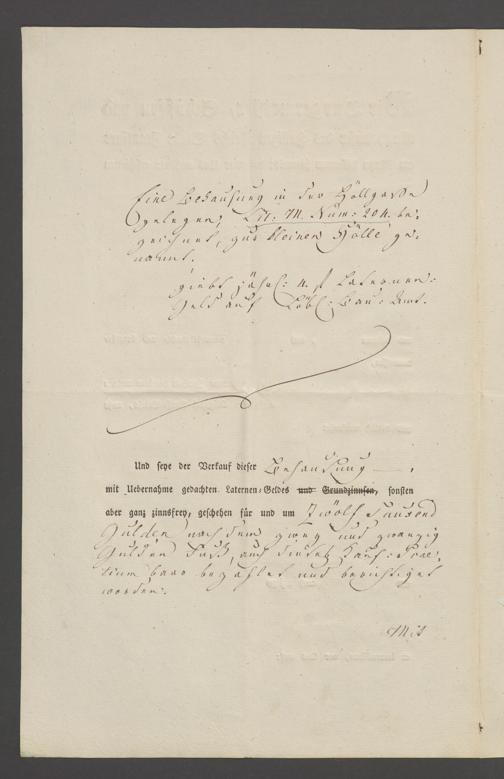 Eine Behausung in der Höllgasse
gelegen, Lit: M. Num: 204. be-
zeichnet, zur kleinen Hölle ge-
nannt.
giebt jährl: 4. f Laternen-
Geld auf Löbl: Bau-Amt.
Und seye der Verkauf dieser Behausung —,
mit Uebernahme gedachten Laternen-Geldes und Grundzinnsen, sonsten
aber ganz zinnsfrey, geschehen für und um Zwölf Tausend
Gulden nach dem zwey und zwanzig
Gulden Fuß, auch dieses Kauf-Prae-
tium baar bezahlet und berichtiget
worden.
Mit